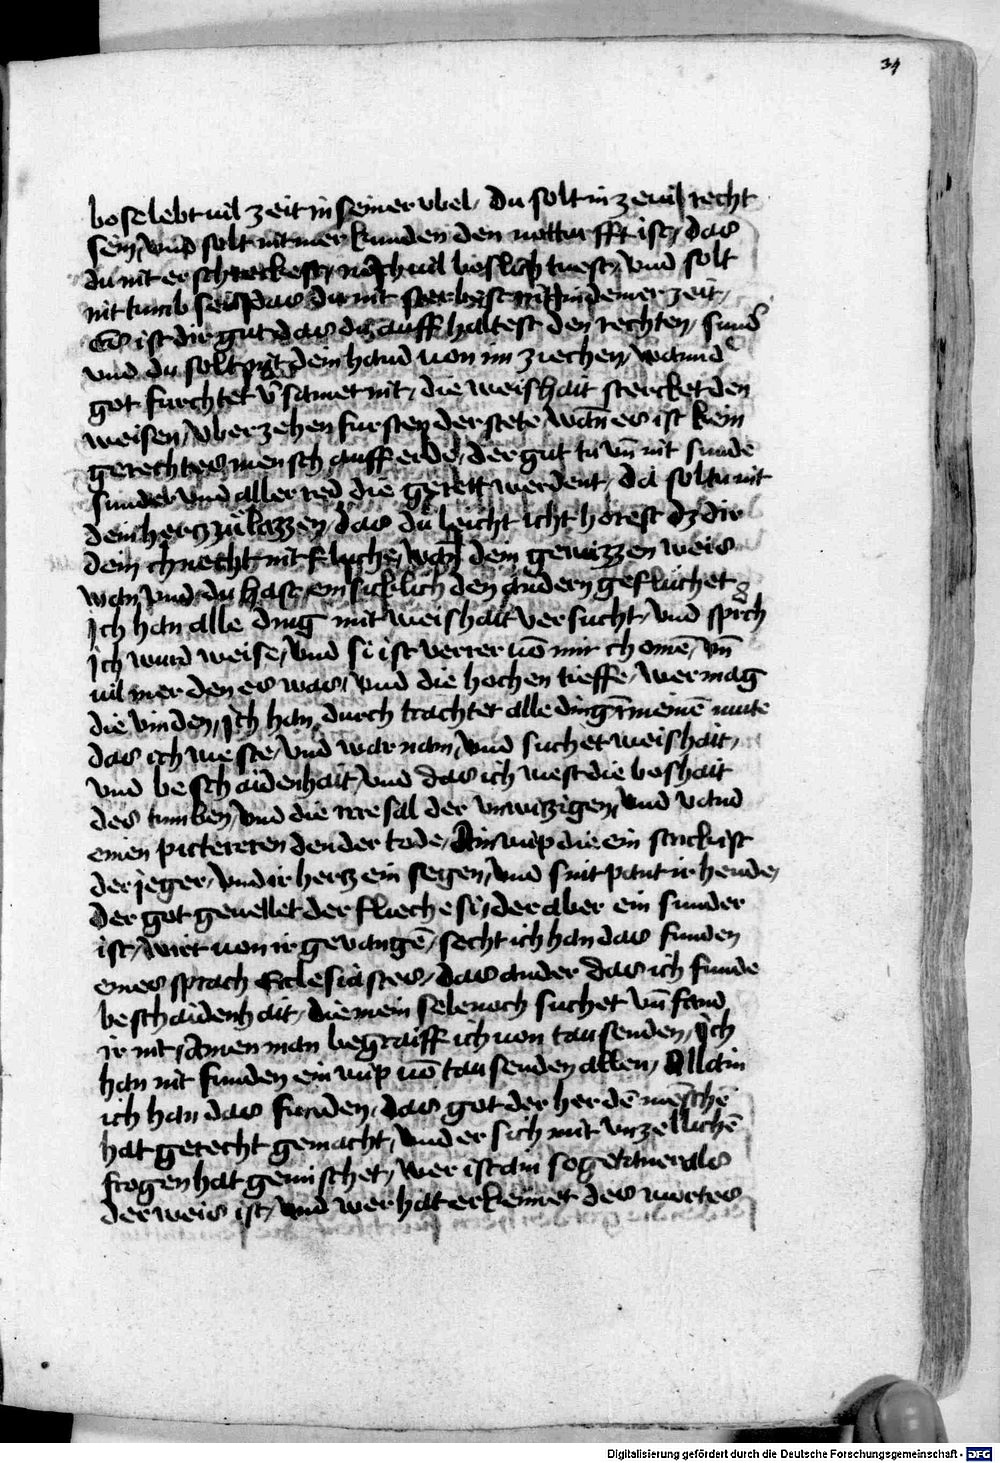 34
bose lebt uil zeit in seiner vbel / du solt in zeuil recht
sein / vnd solt nit mer kunden den notturfft ist / das
du nit erschreckest / noch uil boslich tuest / vnd solt
nit tumb sein das du nit sterbist in deiner zeit /
es ist dir gut das du auff haltest den rechten / sund
vnd du solt nit dein hand uon im ziechen / wann d
got furchtet v̄samet nit / die weishait stercket den
weisen / vber zehen fursten der stete / wan̄ es ist kein
gerechtes mensch auff erde / der gut tu vn̄ nit sunde
sunder vnd aller red die geredt werdent / da soltu nit
dein hercz zu lazzen / das du leicht icht horest dz dir
dein chnecht nit fluche / wan̄ dein gewizzen weis
wan vnd du hast ein sicklich den andern gefluchet
Ich han alle ding mit weishait versucht / vnd sprch
ich wurd weise / vnd si ist verrer uō mir chomē / vn̄
uil mer den es was / vnd die hochen tieffe / wer mag
die vinden / Ich han durch trachtet alle ding in meinē mute
das ich weste / vnd war nam / vnd suchet weishait /
vnd beschaidenhait / vnd das ich west die boshait
des tumben / vnd die irresal der vnwizigen / vnd vand
einen pictereren den der tode / Ain wip die ein strick ist
der jeger / vnd ir hercz ein segen / vnd sint pant ir hende /
der got geuellet der fliech e si / der aber ein sunder
ist / wirt uon ir geuangē / secht ich han das funden
eines sprach Eclesiastes / das ander das ich funde
beschaidenhait / die mein sele noch suchet vn̄ fand
ir nit / ainen man begraiff ich uon tausenden / Ich
han nit funden ein wip uō tausenden allen / Allain
ich han das funden / das got der her dē menschē
hat gerecht gemacht / vnd er sich mit vnzellichē
frogen hat gemischet / wer ist ain sogetaner als
der weis ist / vnd wer hat erkennet des wortes
Digitalisierung gefördert durch die Deutsche Forschungsgemeinschaft - DFG